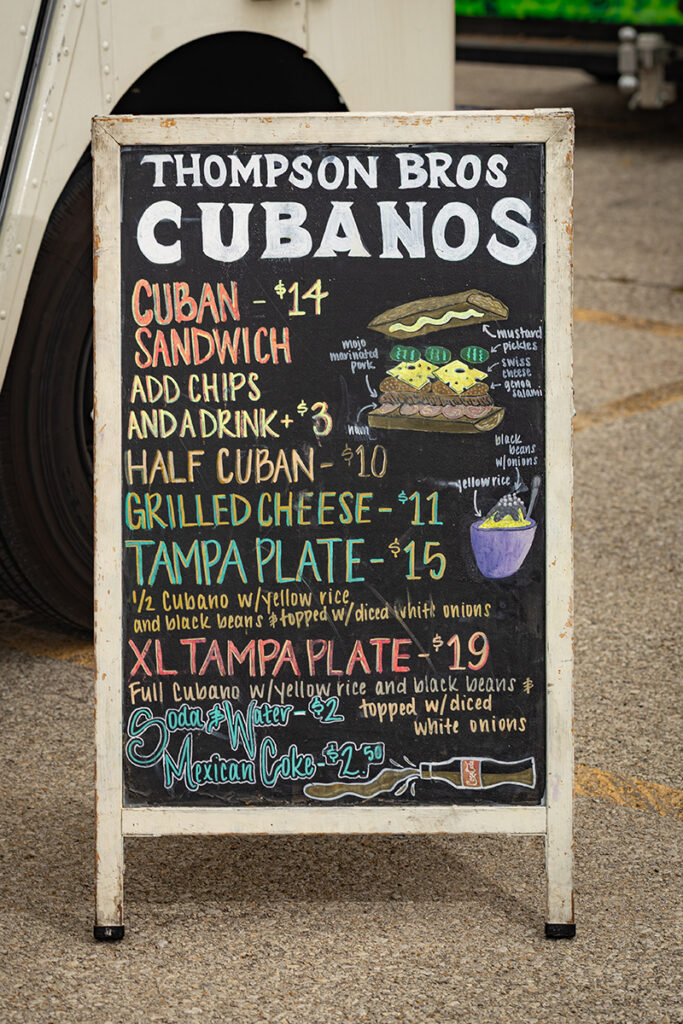 THOMPSON BROS
CUBANOS
CUBAN - $14
SANDWICH
ADD CHIPS
AND A DRINK + $3
mustard
pickles
swiss
cheese
genoa
salami
mojo
marinated
pork
ham
HALF CUBAN - $10
black
beans
w/onions
yellow rice
GRILLED CHEESE - $11
TAMPA PLATE - $15
1/2 Cubano w/yellow rice
and black beans & topped w/diced white onions
XL TAMPA PLATE - $19
Full Cubano w/yellow rice and black beans &
topped w/diced
white onions
Soda & Water - $2
Mexican Coke - $2.50